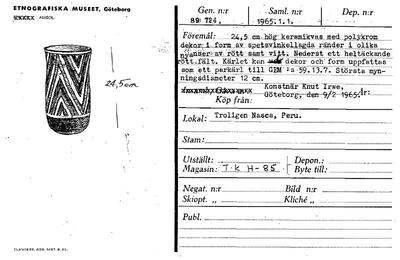 ETNOGRAFISKA MUSEET, Göteborg
24,5 cm
Gen. n:r Saml. n:r Dep. n:r
89 724, 1965.1.1.
Föremål: 24,5 cm hög keramikvas med polykrom
dekor i form av spetsvinkellagda ränder i olika
nyanser av rött samt vitt. Nederst ett heltäckande
rött fält. Kärlet kan dekor och form uppfattas
som ett parkärl till GEM :s 59.13.7. Största myn-
ningsdiameter 12 cm.
Konstnär Knut Irwe, År:
Köp från: Göteborg, den 9/2 1965.
Lokal: Troligen Nasca, Peru.
Stam:
Utställt: Depon.:
Magasin: T.K H-85 Byte till:
Negat. n:r Bild n:r
Skiopt. „ Kliché „
Publ.